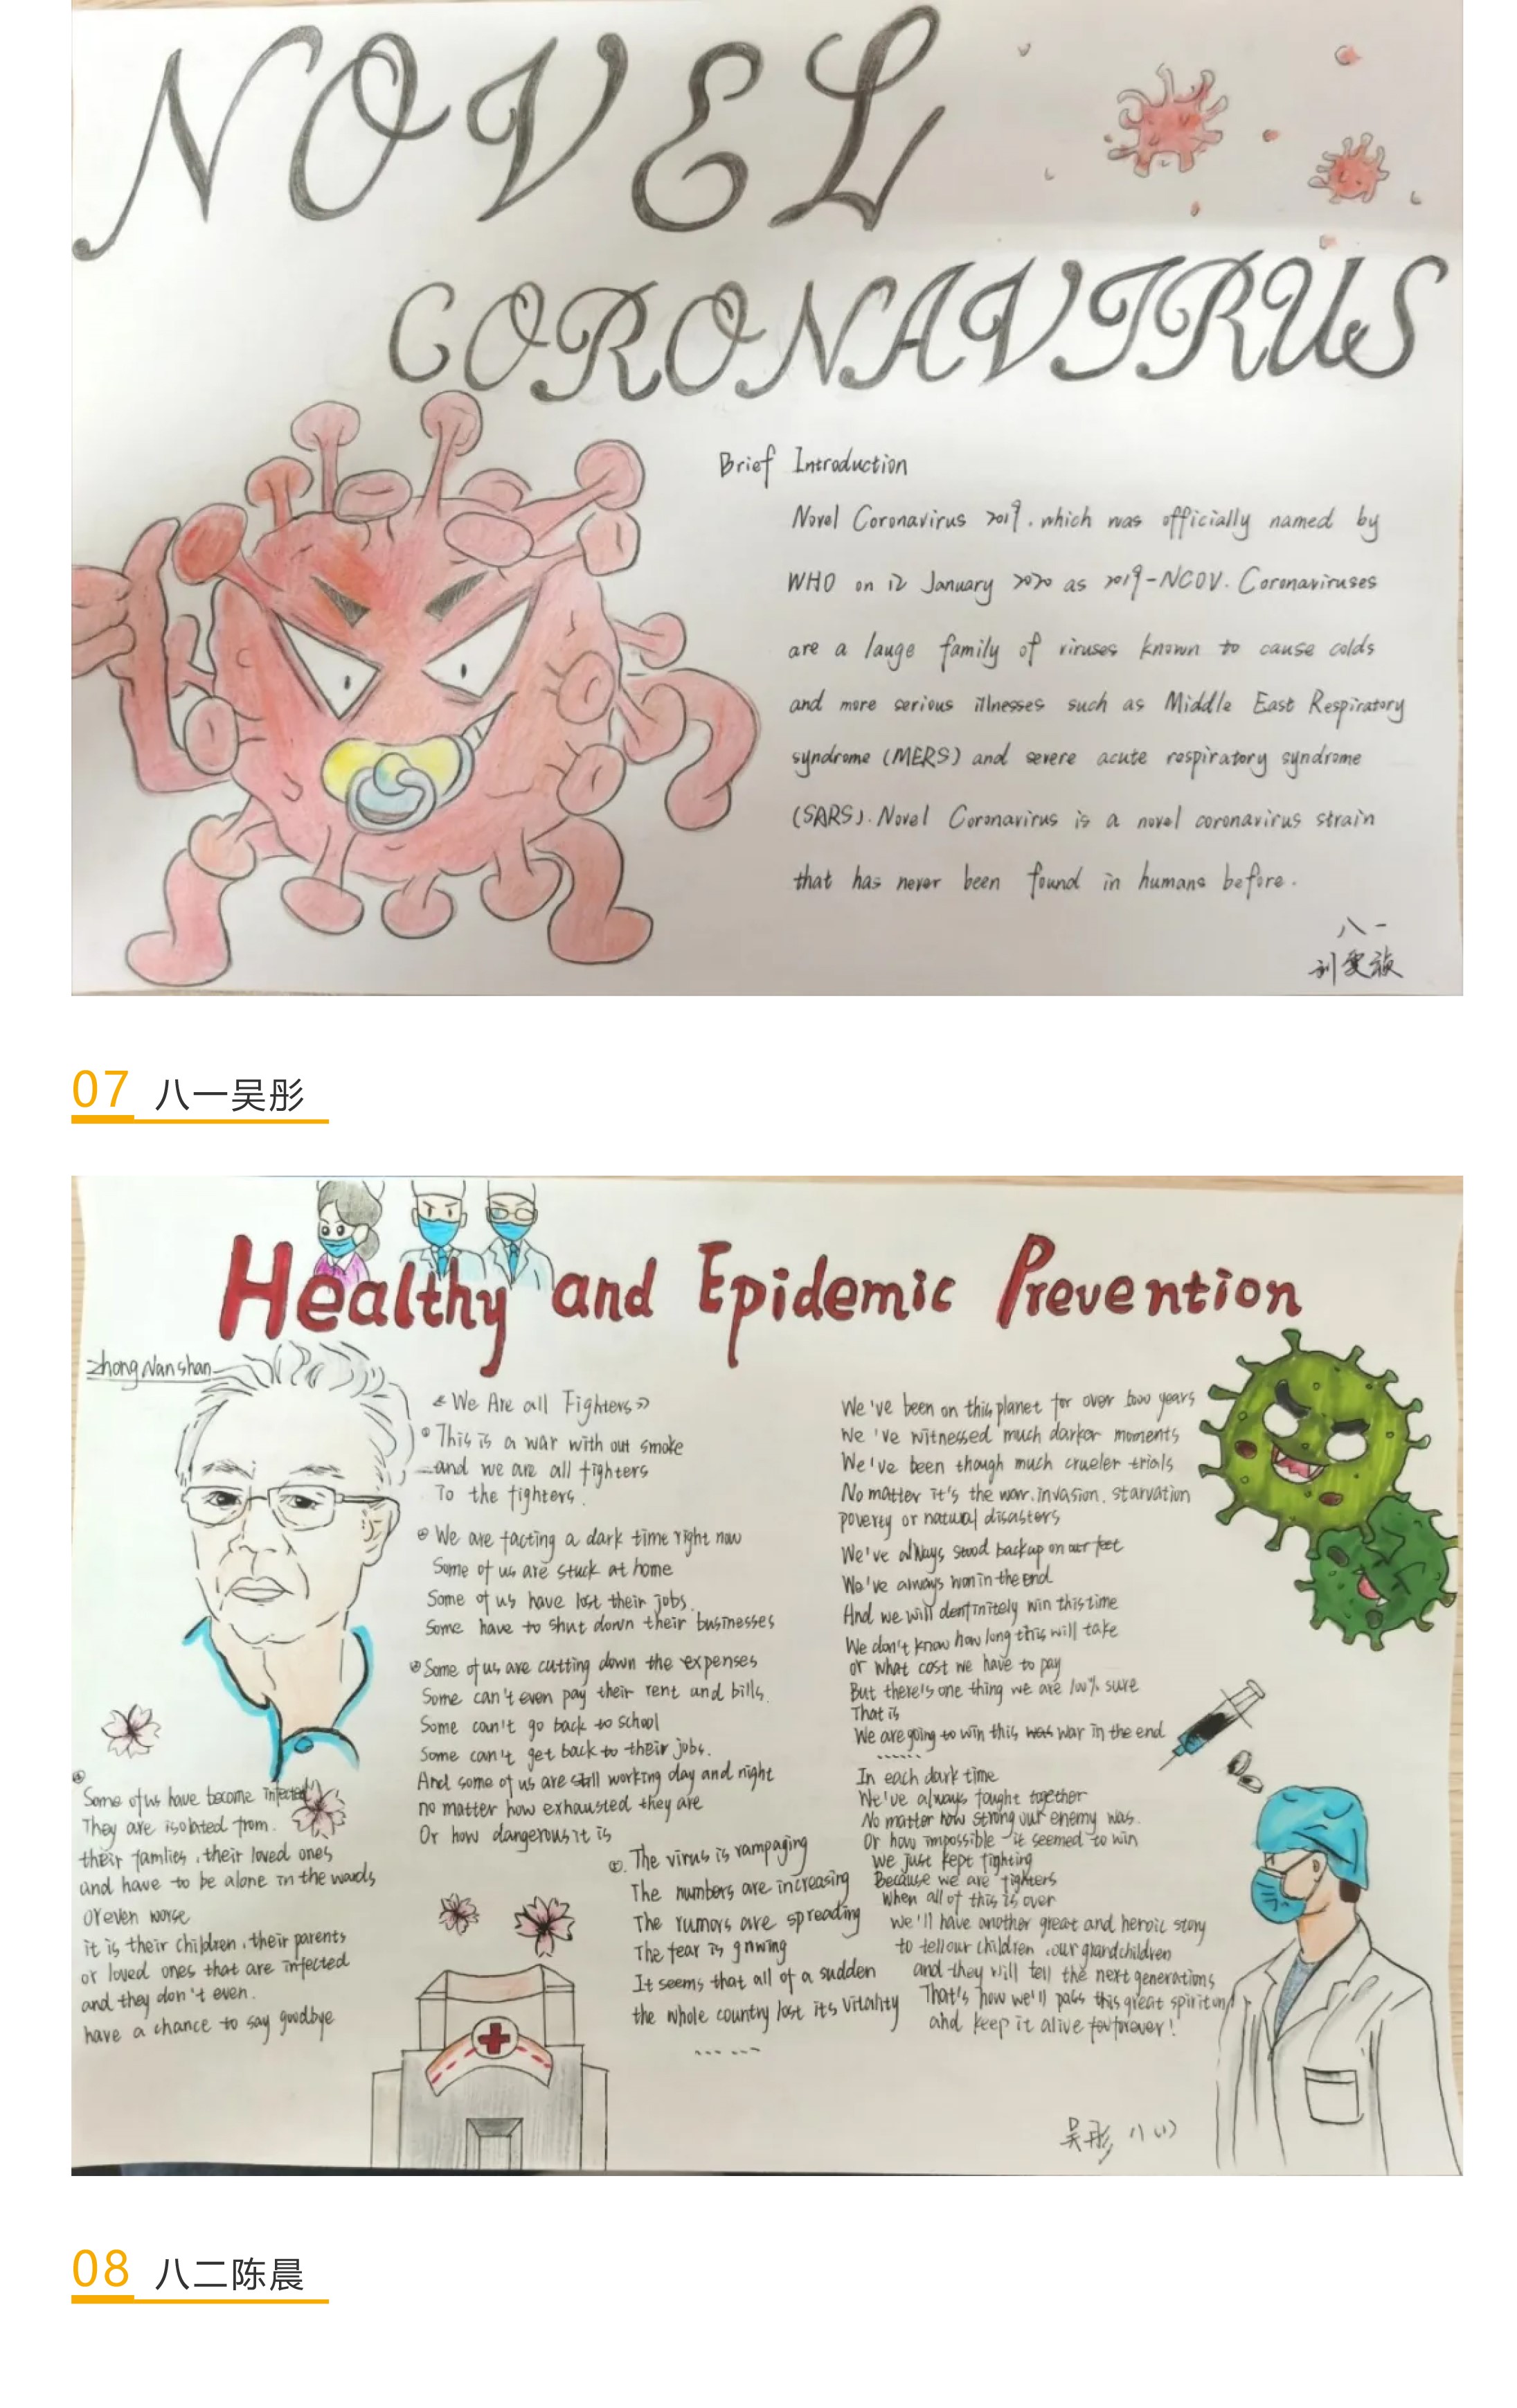 NOVEL
CORONAVIRUS
Brief Introduction
Novel Coronavirus 2019. which was officially named by
WHO on 12 January 2020 as 2019-NCOV. Coronaviruses
are a lauge family of viruses known to cause colds
and more serious illnesses such as Middle East Respiratory
syndrome (MERS) and severe acute respiratory syndrome
(SARS). Novel Coronavirus is a novel coronavirus strain
that has never been found in humans before.
八一
07 八一吴彤
Healthy and Epidemic Prevention
Zhong Nanshan
《We Are all Fighters》
This is a war with out smoke
and we are all fighters
To the fighters.
We are facting a dark time right now
Some of us are stuck at home
Some of us have lost their jobs.
Some have to shut down their businesses
Some of us are cutting down the expenses
Some can't even pay their rent and bills.
Some can't go back to school
Some can't get back to their jobs.
And some of us are still working day and night
no matter how exhausted they are
Or how dangerous it is
Some of us have become infected
They are isolated from.
their famlies, their loved ones
and have to be alone in the wards
Or even worse
it is their children, their parents
or loved ones that are infected
and they don't even.
have a chance to say goodbye
The virus is rampaging
The numbers are increasing
The rumors are spreading
The fear is growing
It seems that all of a sudden
the whole country lost its vitality
......
We've been on this planet for over years
We 've witnessed much darker moments
We've been though much crueler trials
No matter it's the war. invasion. starvation
poverty or natural disasters
We've always stood back up on our feet
We've always won in the end
And we will dentinitely win this time
We don't know how long this will take
or what cost we have to pay
But there's one thing we are 100% sure
That is
We are going to win this war in the end
......
In each dark time
We've always fought together
No matter how strong our enemy was.
Or how impossible it seemed to win
We just kept fighting
Because we are fighters
When all of this is over
We'll have another great and heroic story
to tell our children, our grandchildren
and they will tell the next generations
That's how we'll pass this great spirit on
and keep it alive forever!
吴彤 八(1)
08 八二陈晨